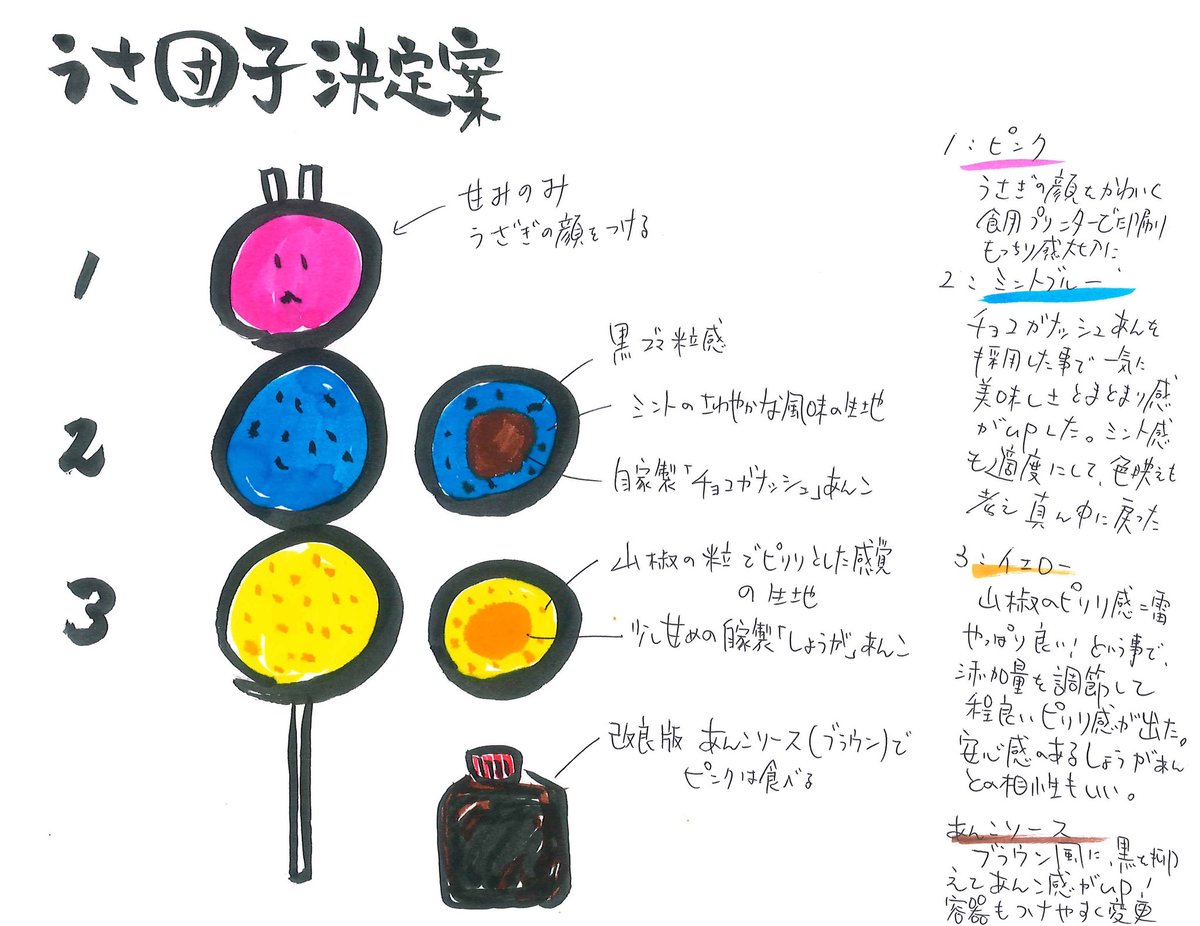 うさ団子決定案
1
甘みのみ
うさぎの顔をつける
2
黒ゴマ粒感
ミントのさわやかな風味の生地
自家製「チョコガナッシュ」あんこ
3
山椒の粒でピリリとした感覚
の生地
少し甘めの自家製「しょうが」あんこ
改良版 あんこソース(ブラウン)で
ピンクは食べる
1:ピンク
うさぎの顔をかわいく
食用プリンターで印刷
もっちり感大切に
2:ミントブルー
チョコガナッシュあんを
採用した事で一気に
美味しさとまとまり感
がupした。ミント感
も適度にして、色映えも
考え真ん中に戻った
3:イエロー
山椒のピリリ感=雷
やっぱり良い!という事で、
添加量を調節して
程良いピリリ感が出た。
安心感のあるしょうがあん
との相性もいい。
あんこソース
ブラウン風に、黒を抑
えてあんこ感がup!
容器もつけやすく変更